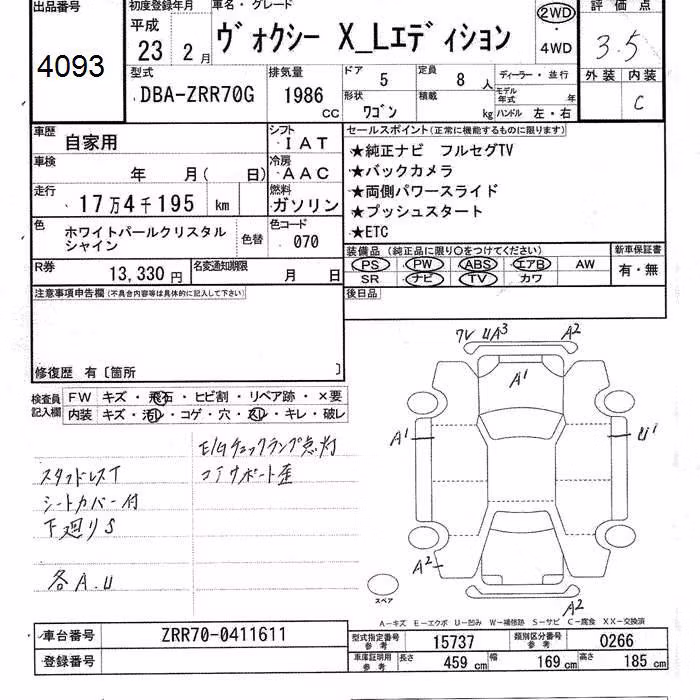 出品番号
4093
初度登録年月
平成
23 2月
車名・グレード
ヴォクシー X_Lエディション
2WD
・
4WD
評価点
3.5
外装 内装
C
型式
DBA-ZRR70G
排気量
1986
cc
ドア 5
定員 8 人
形状 ワゴン
積載 kg
ディーラー・並行
モデル年式 年
ハンドル 左・右
車歴 自家用
シフト ・IAT
車検 年 月( 日)
冷房 ・AAC
走行 17万4千195 km
燃料 ガソリン
色 ホワイトパールクリスタルシャイン
色替
色コード ・070
R券 13,330 円
名変通知期限 月 日
セールスポイント(正常に機能するものに限ります)
★純正ナビ フルセグTV
★バックカメラ
★両側パワースライド
★プッシュスタート
★ETC
装備品 (純正品に限り〇をつけてください)
PS ・ PW ・ ABS ・ エアB ・ AW
SR ・ ナビ ・ TV ・ カワ
新車保証書
有・無
後日品
注意事項申告欄(不具合内容等は具体的に記入して下さい)
修復歴 有〔箇所 〕
検査員記入欄
FW キズ・飛石・ヒビ割・リペア跡・×要
内装 キズ・汚レ・コゲ・穴・スレ・キレ・破レ
E/Gチェックランプ点灯
コアサポート歪
スタッドレスT
シートカバー付
下廻りS
各A.U
ワレ UA3
A2
A1
A1
U1
A2
A2
スペア
A-キズ E-エクボ U-凹み W-補修跡 S-サビ C-腐食 XX-交換済
車台番号 ZRR70-0411611
登録番号
型式指定番号参考 15737
類別区分番号参考 0266
車庫証明用参考 長さ 459 cm 幅 169 cm 高さ 185 cm